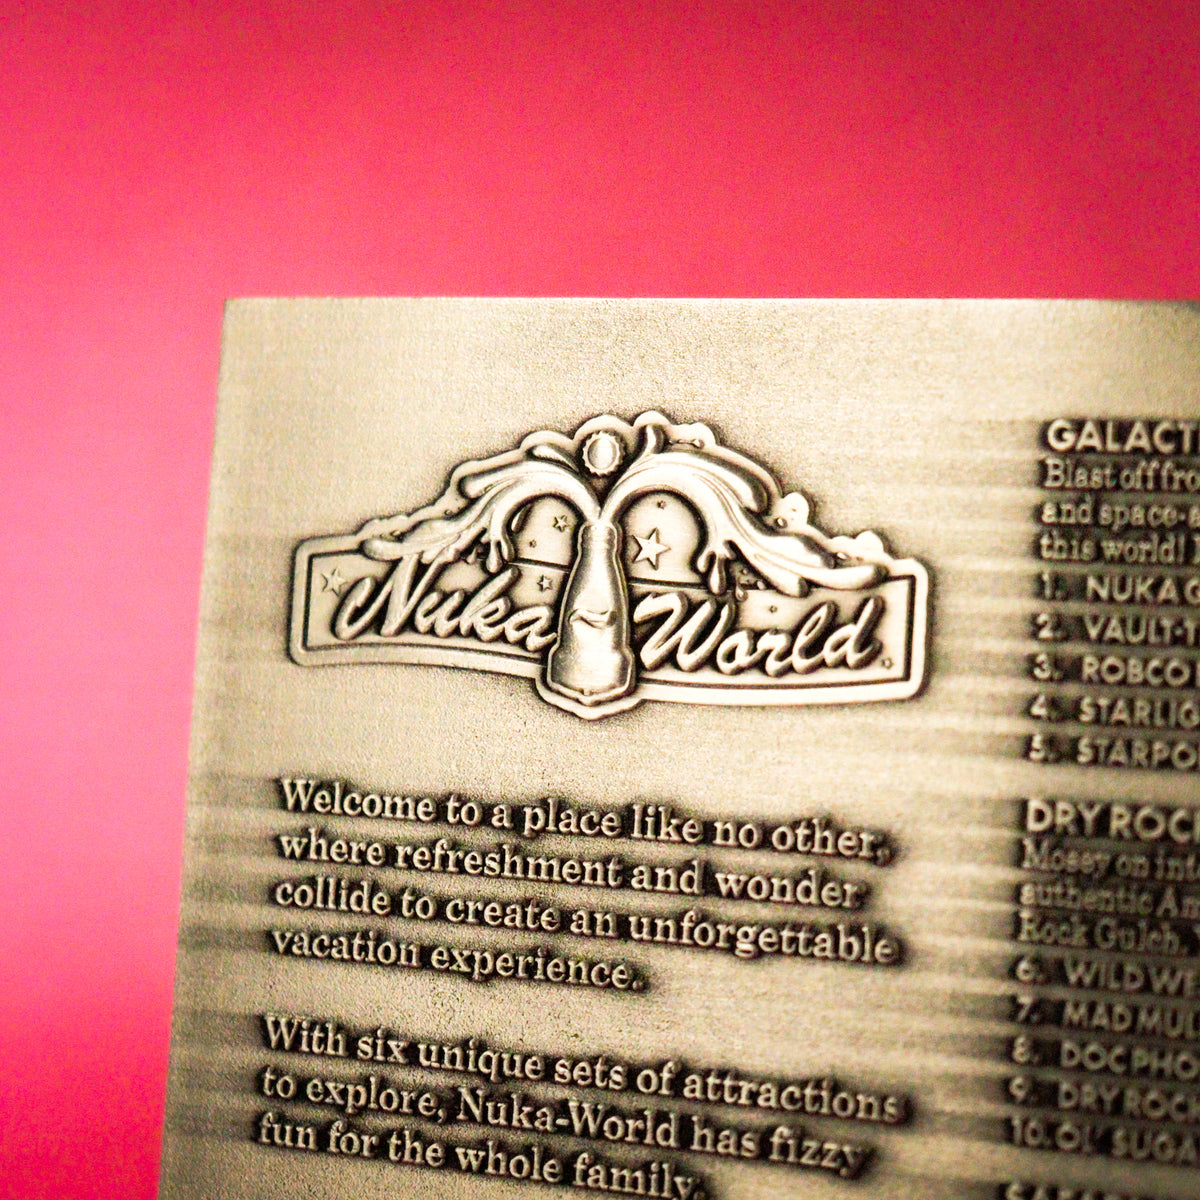 Nuka World
Welcome to a place like no other,
where refreshment and wonder
collide to create an unforgettable
vacation experience.
With six unique sets of attractions
to explore, Nuka-World has fizzy
fun for the whole family.
GALACT
Blast off fro
and space-
this world!
1. NUKA
2. VAULT-T
3. ROBCO
4. STARLIG
5. STARPO
DRY ROC
Mosey on int
authentic Am
Rock Gulch.
6. WILD WE
7. MAD MUL
8. DOC PHO
9. DRY ROC
10. OL' SUGA